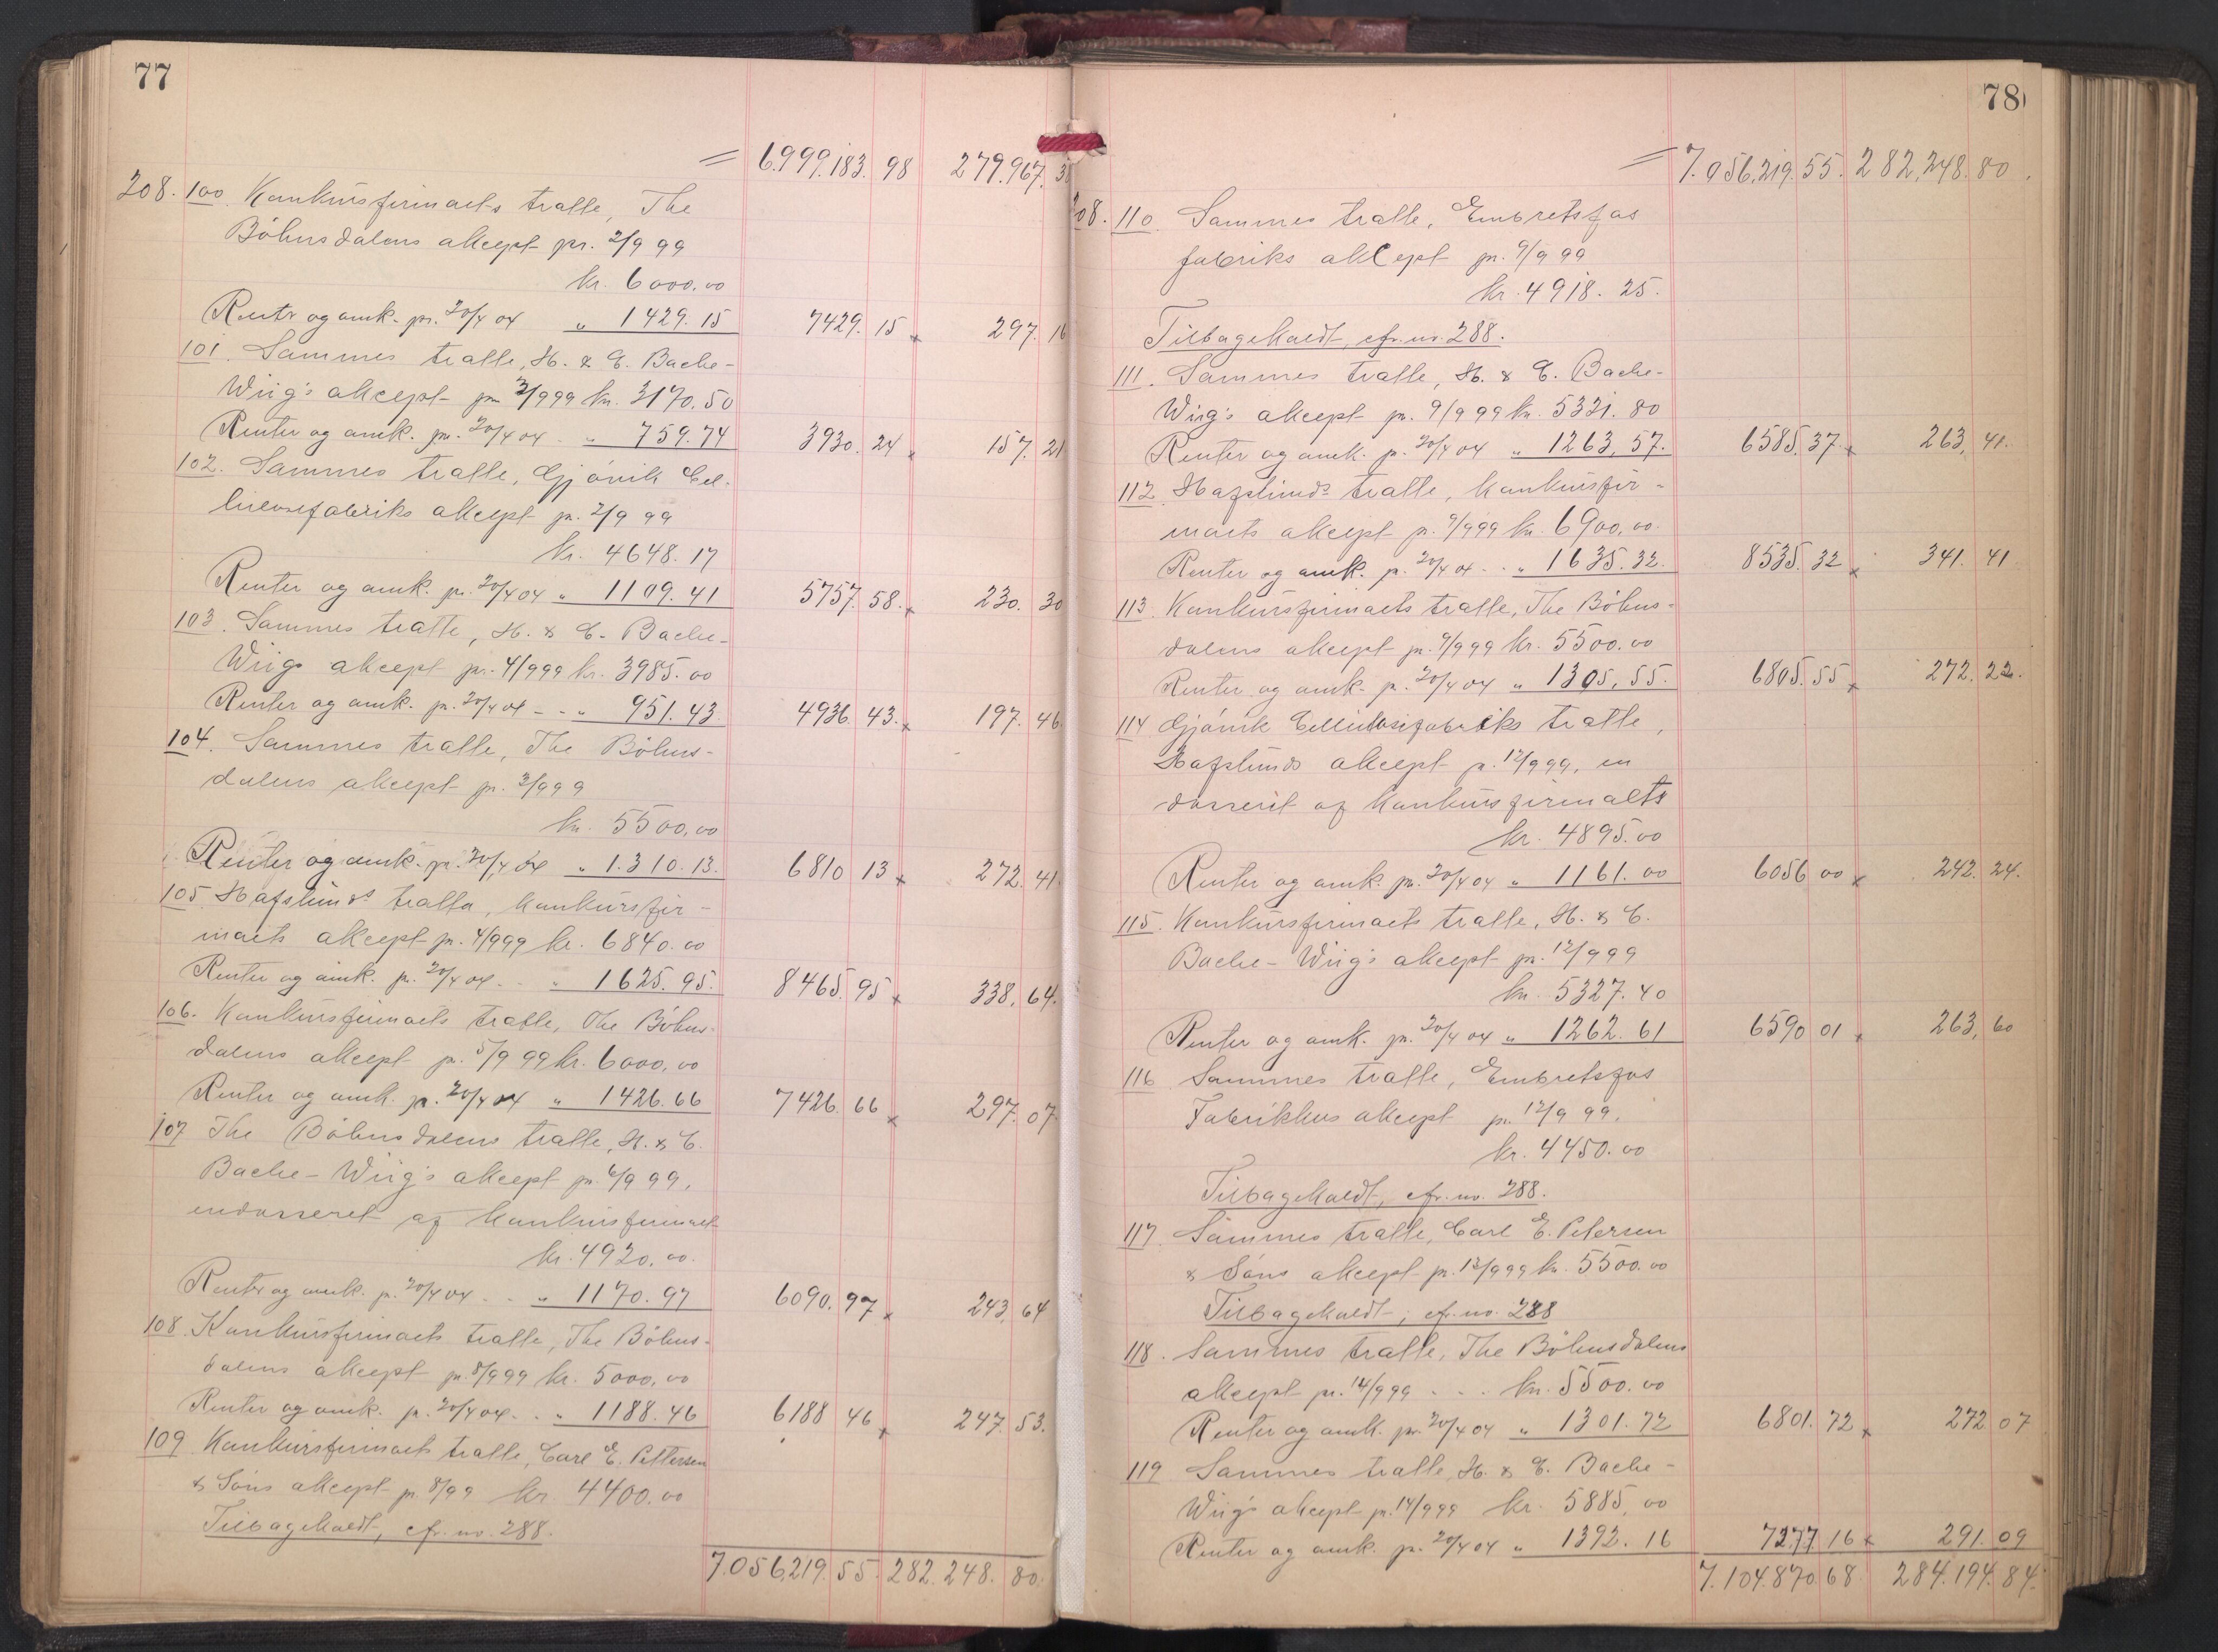 77
= 6.999.183. 98 279.967. 38
208. 100. Konkursfirmaets tratte, The
Böhnsdalens akcept pr. 2/9 99
kr. 6000.00
Renter og omk. pr. 20/4 04 " 1429.15 7429.15 x 297.16
101. Sammes tratte, H. & C. Bache-
Wiig's akcept pr. 2/9 99 kr. 3170.50
Renter og omk. pr. 20/4 04 - " 759.74 3930.24 x 157.21
102. Sammes tratte, Gjövik Cel-
lulosefabriks akcept pr. 2/9 99
kr. 4648.17
Renter og omk. pr. 20/4 04 " 1109.41 5757.58. x 230.30
103. Sammes tratte, H. & C. Bache-
Wiigs akcept pr. 4/9 99 kr. 3985.00
Renter og omk. pr. 20/4 04 - - " 951.43 4936.43. x 197.46
104. Sammes tratte, The Böhns-
dalens akcept pr. 2/9 99
kr. 5500.00
Renter og omk. pr. 20/4 04 " 1.310.13. 6810 13 x 272.41.
105. Hafslunds tratta, konkursfir-
maets akcept pr. 4/9 99 kr. 6840.00
Renter og omk. pr. 20/4 04 - - " 1625.95. 8465.95 x 338.64.
106. Konkursfirmaets tratte, The Böhns-
dalens akcept pr. 5/9 99 kr. 6000.00
Renter og omk. pr. 20/4 04 " 1426.66 7426.66 x 297.07.
107. The Böhnsdalens tratte, H. & C.
Bache-Wiig's akcept pr. 6/9 99,
endosseret af konkursfirmaet
kr. 4920.00.
Renter og omk. pr. 20/4 04 - - " 1170.97 6090.97 x 243.64
108. Konkursfirmaets tratte, The Böhns-
dalens akcept pr. 8/9 99 kr. 5000.00
Renter og omk. pr. 20/4 04 - - " 1188.46 6188 46 x 247.53.
109 Konkursfirmaets tratte, Carl E. Pettersen
& Söns akcept pr. 8/9 9 kr. 4400.00
Tilbagekaldt, cfr. no. 288.
7.056.219.55. 282.248.80.
78
= 7.056.219.55. 282.248.80.
208. 110. Sammes tratte, Embretsfos
fabriks akcept pr. 9/9 99
kr. 4918.25.
Tilbagekaldt, cfr. no. 288.
111. Sammes tratte, H. & C. Bache-
Wiig's akcept pr. 9/9 99 kr. 5321.80
Renter og omk. pr. 20/4 04 " 1263,57. 6585.37. x 263,41.
112. Hafslunds tratte, konkursfir-
maets akcept pr. 9/9 99 kr. 6900.00.
Renter og omk. pr. 20/4 04 - - " 1635.32. 8535.32 x 341.41
113. Konkursfirmaets tratte, The Böhns-
dalens akcept pr. 9/9 99 kr. 5500.00
Renter og omk. pr. 20/4 04 " 1305,55. 6805.55 x 272.22.
114 Gjövik Cellulosefabriks tratte,
Hafslunds akcept pr. 12/9 99, en
dosseret af konkursfirmaets
kr. 4895.00
Renter og omk. pr. 20/4 04 " 1161.00 6056 00 x 242.24.
115. Konkursfirmaets tratte, H. & C.
Bache-Wiig's akcept pr. 12/9 99
kr. 5327.40
Renter og omk. pr. 20/4 04 " 1262.61 6590 01 x 263,60
116 Sammes tratte, Embretsfos
Fabrikkers akcept pr. 12/9 99.
kr. 4450.00
Tilbagekaldt, cfr. no. 288.
117. Sammes tratte, Carl E. Petersen
& Söns akcept pr. 13/9 99 kr. 5500.00
Tilbagekaldt, cfr. no. 288
118. Sammes tratte, The Böhnsdalens
akcept pr. 14/9 99 - - - kr. 5500.00
Renter og omk. pr. 20/4 04 " 1301.72 6801.72 x 272 07
119 Sammes tratte, H. & C. Bache-
Wiig's akcept pr. 14/9 99 kr. 5885.00
Renter og omk. pr. 20/4 04 " 1392.16 7277 16 x 291.09
7.104.870.68 284.194.84.